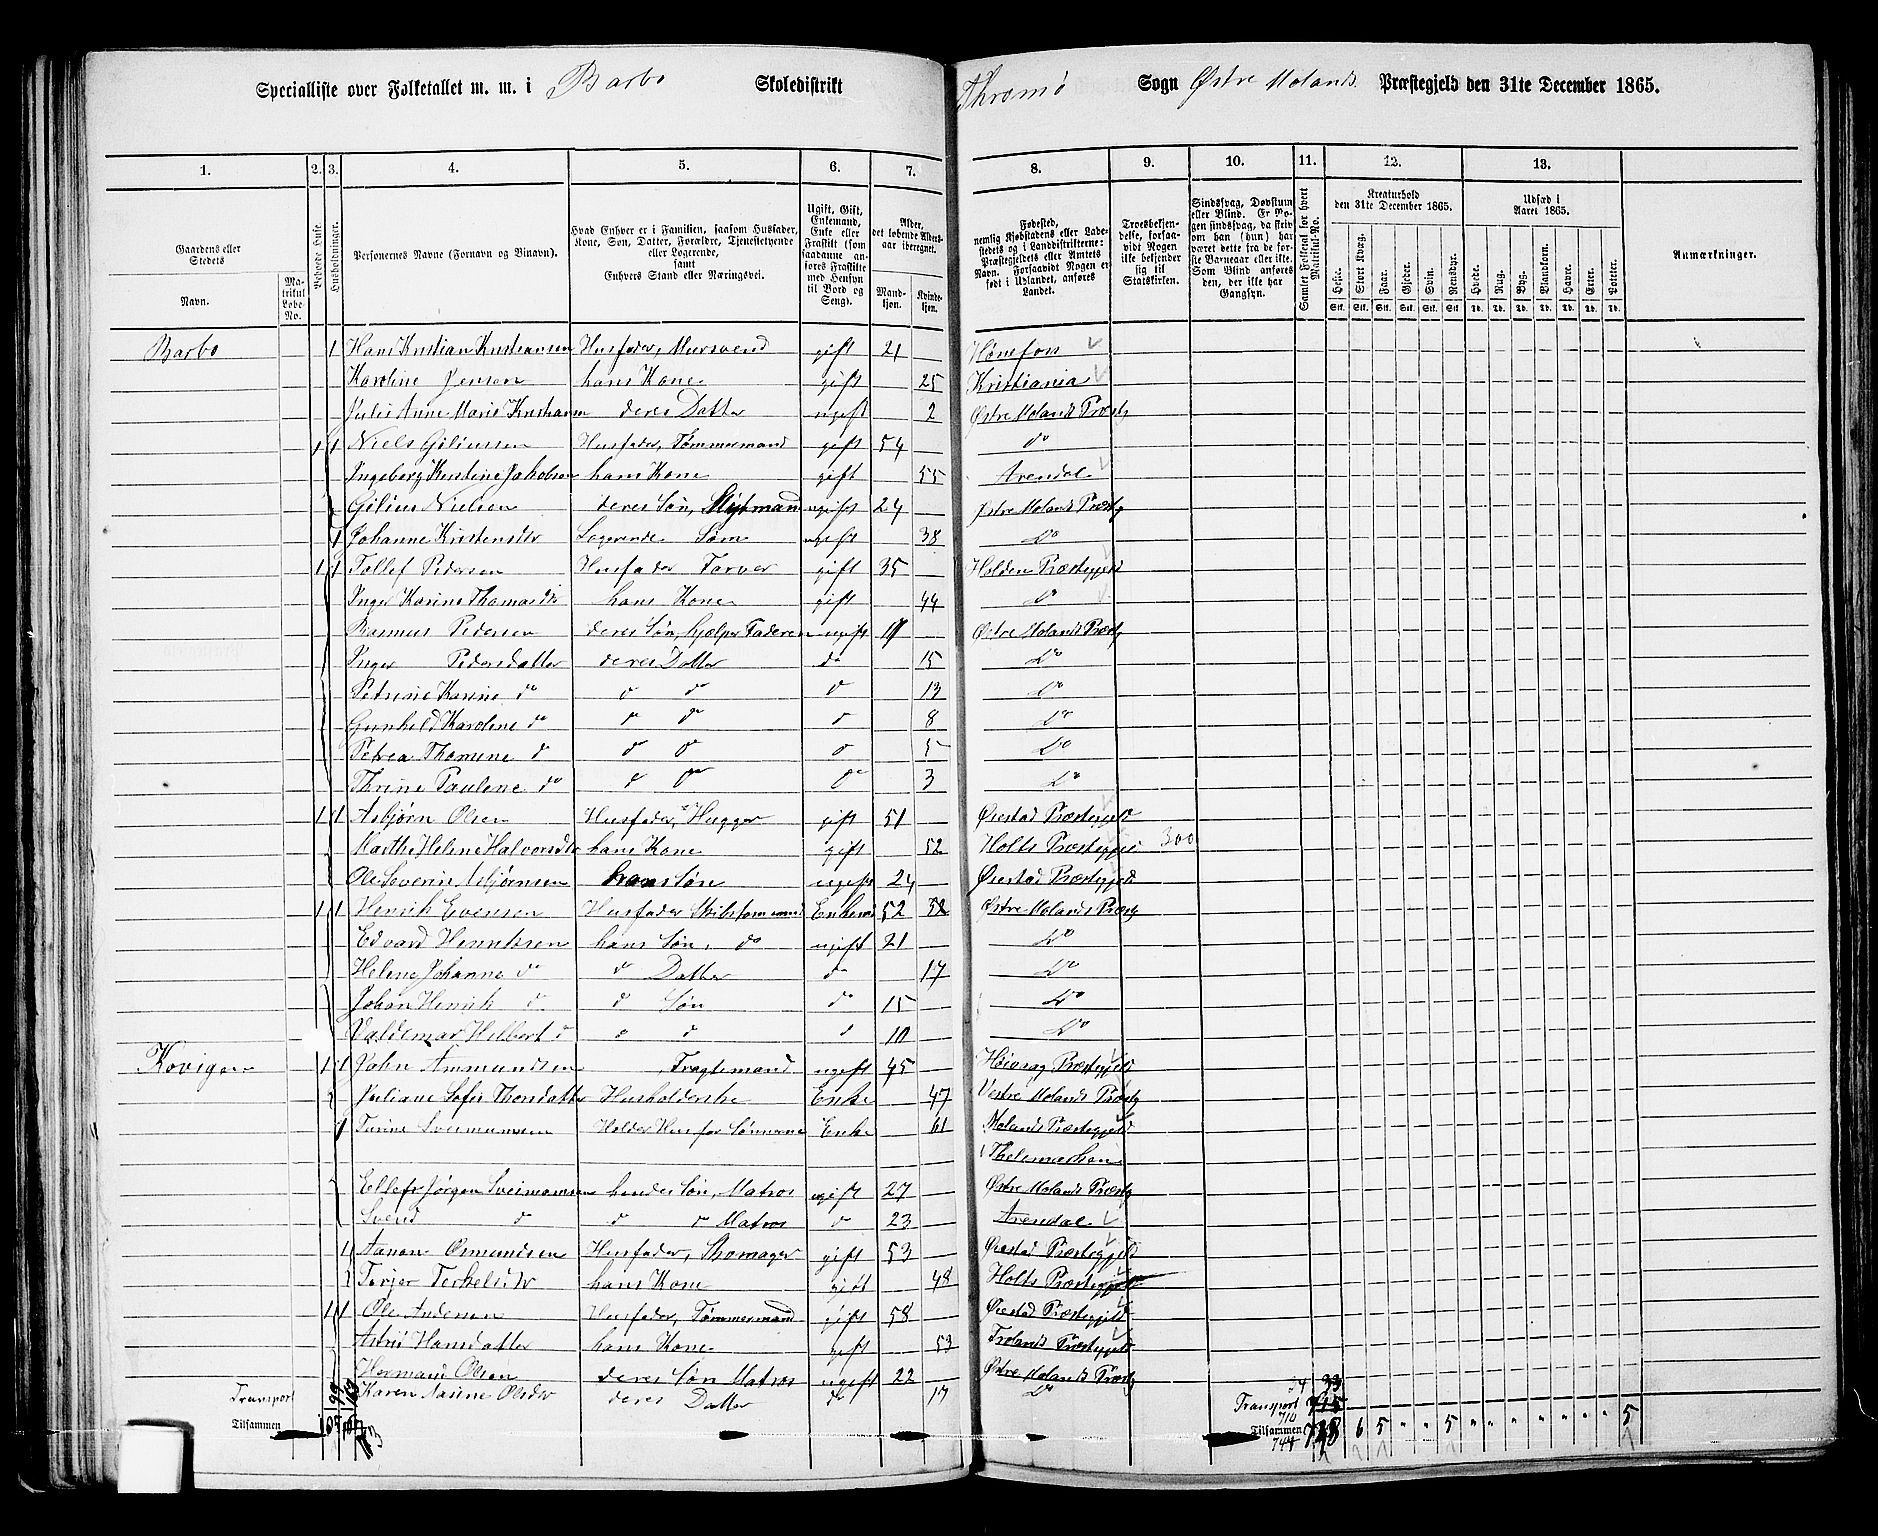 Specialliste over Folketallet m. m. i Barbo Skoledistrikt Thromø Sogn Østre Molands Præstegjeld den 31te December 1865.
1. 2. 3. 4. 5. 6. 7. 8. 9. 10. 11. 12. 13.
Gaardens eller Stedets Navn. Matrikul Løbe-No. Beboede Huse. Husholdninger. Personernes Navne (Fornavn og Binavn). Hvad Enhver er i Familien, saasom Husfader, Kone, Søn, Datter, Forældre, Tjenestetyende eller Logerende, samt Enhvers Stand eller Næringsvei. Ugift, Gift, Enkemand, Enke eller Frastilt (som saadanne anføres Frastilte med Hensyn til Bord og Seng). Alder, det løbende Aldersaar iberegnet. Mandkjøn. Kvindekjøn.
Fødested, nemlig Kjøbstadens eller Ladestedets og i Landdistrikterne: Præstegjeldets eller Amtets Navn. Forsaavidt Nogen er født i Udlandet, anføres Landet. Troesbekjendelse, forsaavidt Nogen ikke bekjender sig til Statskirken. Sindssvag, Døvstum eller Blind. Er Nogen sindssvag, da skrives om han (hun) har været dette fra de første Barneaar eller ikke. Som Blind anføres den, der ikke har Gangsyn. Samlet Folketal for hvert Matrikul-No. Kreaturhold den 31te December 1865. Udsæd i Aaret 1865. Anmærkninger.
Heste. Stort Kvæg. Faar. Gjeder. Sviin. Rensdyr. Hvede. Rug. Byg. Blandkorn. Havre. Erter. Poteter.
Stk. Stk. Stk. Stk. Stk. Stk. Td. Td. Td. Td. Td. Td. Td.
Barbo 1 Hans Kristian Kristiansen Husfader, Mursvend gift 21 Hønefos
Karoline Jensen hans Kone gift 25 Kristiania
Julie Anne Marie Kristiansen deres Datter ugift 2 Østre Molands Præstg
1 1 Niels Giliussen Husfader, Tømmermand gift 54 do
Ingeborg Kirstine Jakobsen hans Kone gift 55 Arendal
Gilius Nielsen deres Søn, Styrmand ugift 24 Østre Molands Præstg
1 Johanne Kristensdtr Logerende Søm ugift 38 Do
1 1 Tollef Pedersen Husfader Farver gift 35 Holden Præstegjeld
Inger Karine Thomasdtr hans Kone gift 44 Do
Rasmus Pedersen deres Søn, hjælper Faderen ugift 17 Østre Molands Præstg
Inger Pedersdatter deres Datter do 15 Do
Petrine Karine do d do d 13 Do
Gunhild Karoline do d do d 8 Do
Petrea Thomine d d d d 5 Do
Thrine Pauline do d do do 3 Do
1 1 Asbjørn Olsen Husfader, Hugger gift 51 Øiestad Præstegjeld
Marthe Helene Halvorsdtr hans Kone gift 52 Holts Præstegjeld 300
Ole Severin Asbjørnsen hans Søn ugift 24 Øiestad Præstegjeld
1 1 Henrik Evensen Husfader Skibstømmermand Enkemd 52 52 Østre Molands Præstg
Edvard Henriksen hans Søn, do ugift 21 Do
Helene Johanne do d Datter do 17 Do
Johan Henrik d d Søn do 15 Do
Valdemar Hilbert d d d d 10 Do
Kovigen 1 1 John Ammundsen Fragtemand ugift 45 Høivaag Præstegjeld
Juliane Sofie Thorsdatter Husholderske Enke 47 Vestre Molands Præstg
1 Turine Sveinumsen Holder Hus for Sønnerne Enke 61 Molands Præstegjeld
Thelemarken
Ellef Jørgen Sveinumsen hendes Søn, Matros ugift 27 Østre Molands Præstg
Svend d d d Matros d 23 Arendal
1 Aanon Osmundsen Husfader, Skomager gift 53 Øiestad Præstegjeld
Torjer Terkelsdtr hans Kone gift 48 Holts Præstegjeld
1 1 Ole Andersen Husfader, Tømmermand gift 58 Øiestad Præstegjeld
Astrid Hansdatter hans Kone gift 53 Frolands Præstegjeld
Hermand Olsen deres Søn Matros ugift 22 Østre Molands Præstg
Karen Olsdtr deres Datter do 17 Do
Transport 99
Tilsammen
33
Transport 715
710
Tilsammen 744 6 5 " " 5 " " " " " " " 5